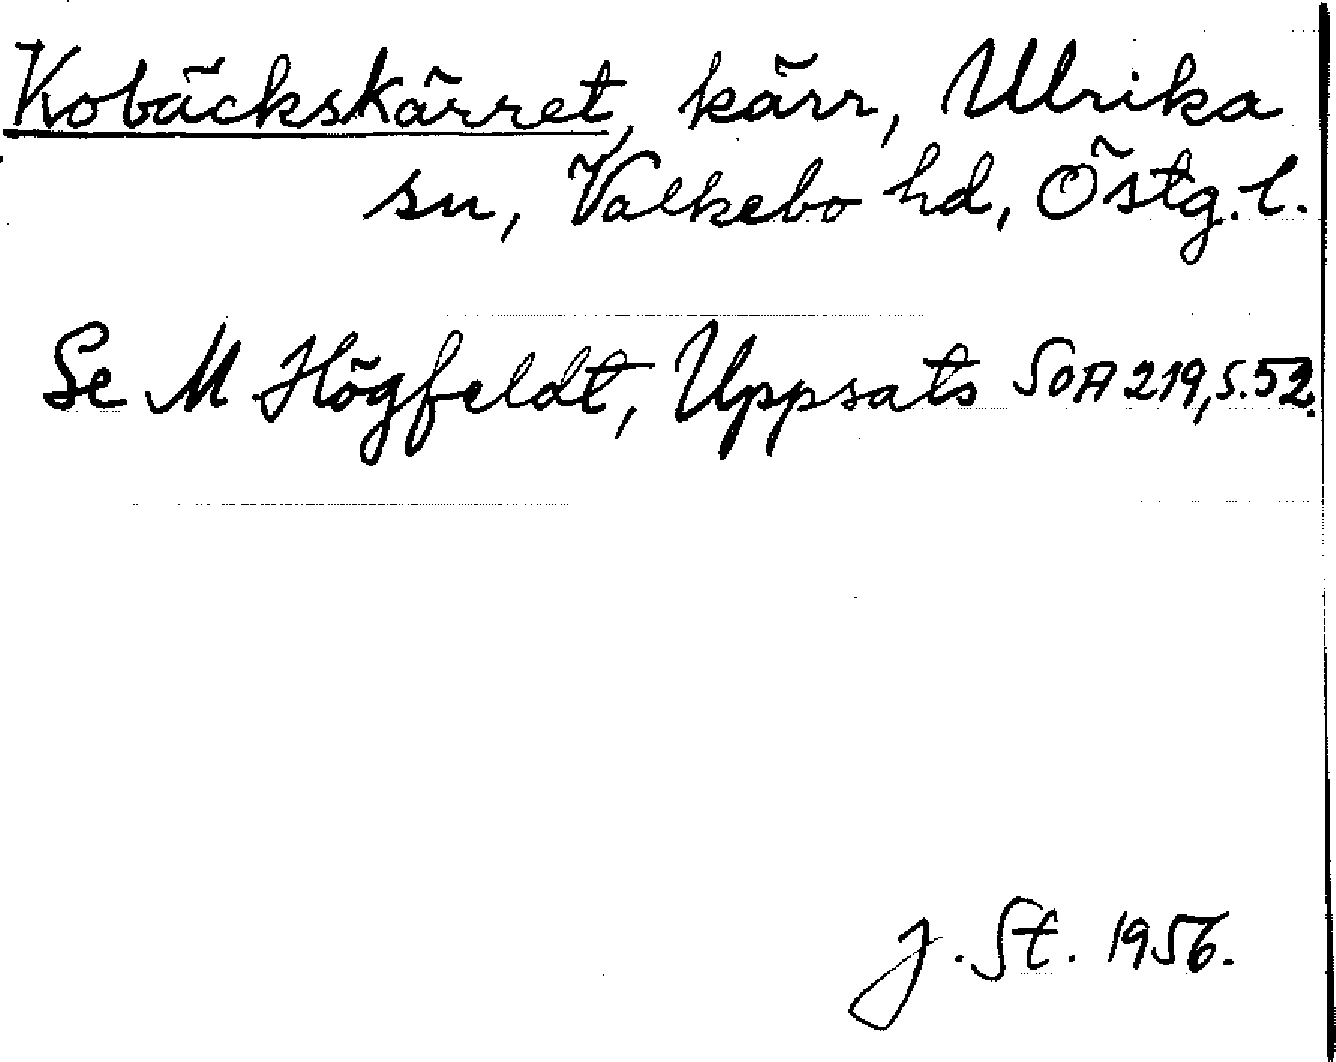 Kobäckskärret, kärr, Ulrika
sn, Valkebo hd, Östg.l.
Se M Högfeldt, Uppsats SOA 219, s.52.
J. St. 1956.